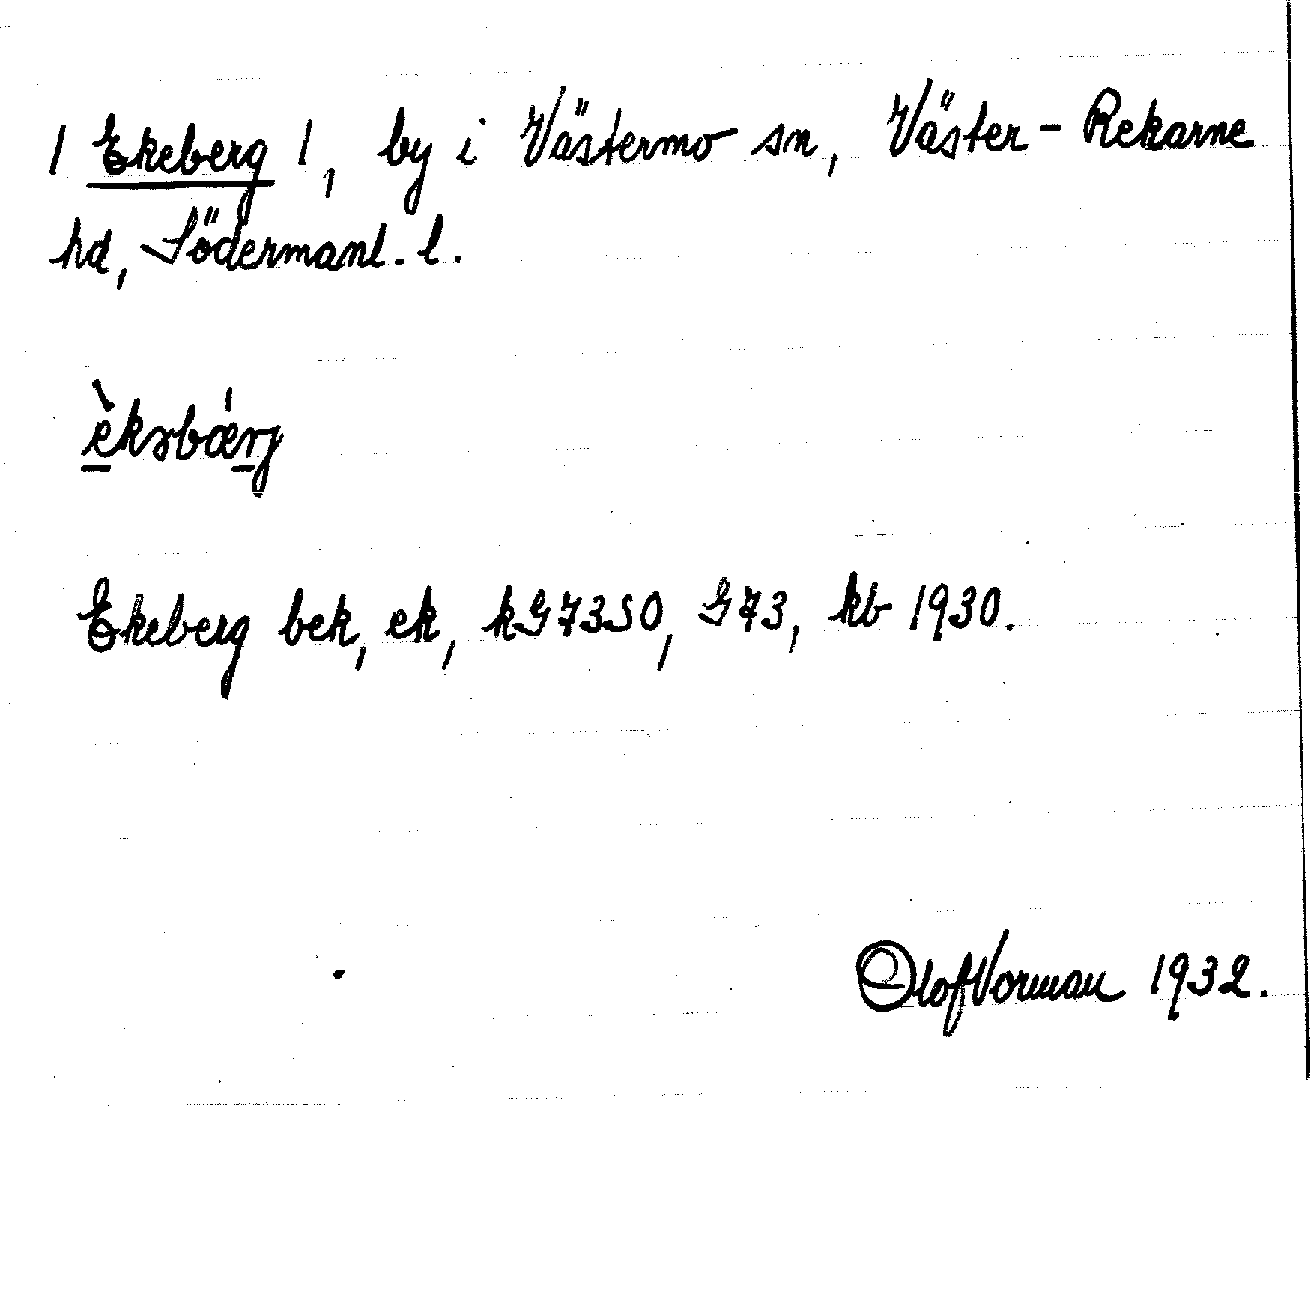 / Ekeberg /, by i Västermo sn, Väster-Rekarne
hd, Södermanl. l.
èkrbǽrj
Ekeberg bek, ek, kG73SO, G73, kb 1930.
Olof Vorman 1932.